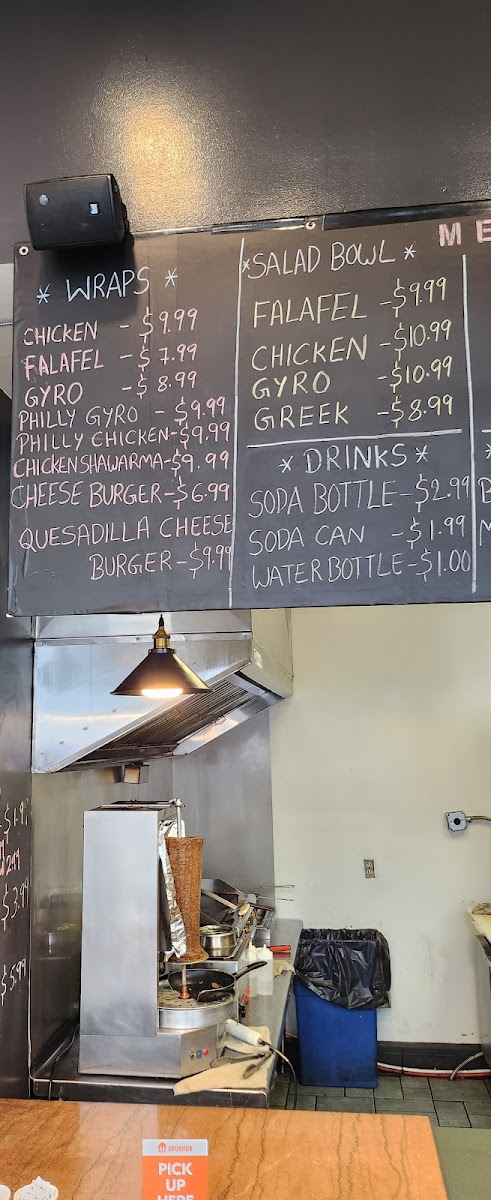 ME
* WRAPS *
CHICKEN - $9.99
FALAFEL - $7.99
GYRO - $8.99
PHILLY GYRO - $9.99
PHILLY CHICKEN-$9.99
CHICKEN SHAWARMA-$9.99
CHEESE BURGER-$6.99
QUESADILLA CHEESE
BURGER-$9.99
*SALAD BOWL *
FALAFEL -$9.99
CHICKEN -$10.99
GYRO -$10.99
GREEK -$8.99
* DRINKS *
SODA BOTTLE-$2.99
SODA CAN -$1.99
WATER BOTTLE-$1.00
$3.99
$5.99
GRUBHUB
PICK
UP
HERE